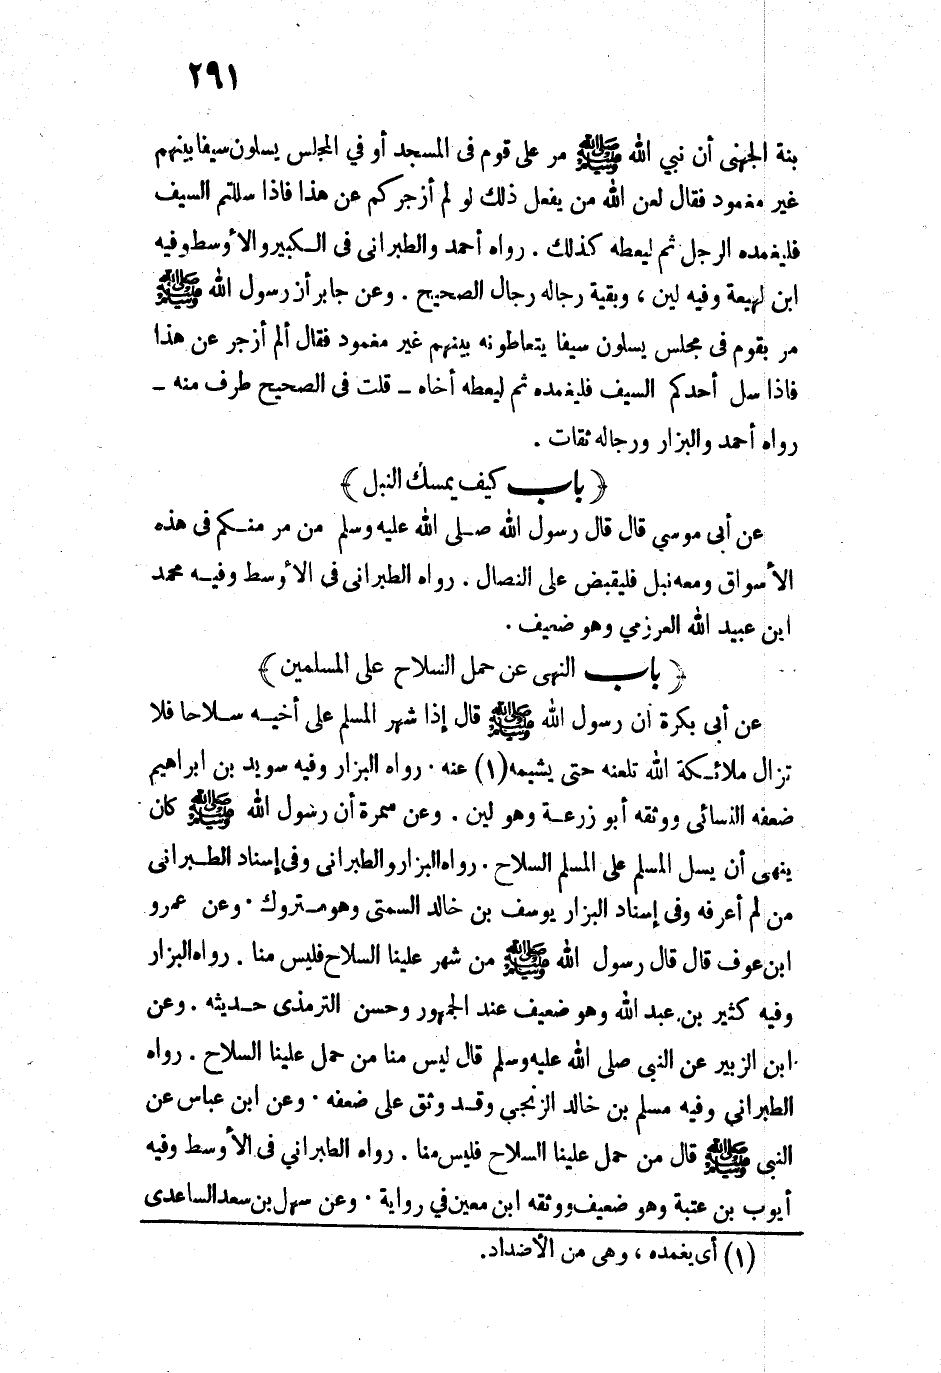 ٢٩١
بنة الجهنى أن نبي الله ﷺ مر على قوم فى المسجد أو في المجلس يسلون سيفا بينهم
غير مغمود فقال لعن الله من يفعل ذلك لو لم أزجركم عن هذا فاذا سللتم السيف
فليغمده الرجل ثم ليعطه كذلك . رواه أحمد والطبرانى فى الكبير والأوسط وفيه
ابن لهيعة وفيه لين ، وبقية رجاله رجال الصحيح . وعن جابر أن رسول الله ﷺ
مر بقوم فى مجلس يسلون سيفا يتعاطونه بينهم غير مغمود فقال ألم أزجر عن هذا
فاذا سل أحدكم السيف فليغمده ثم ليعطه أخاه ــ قلت فى الصحيح طرف منه ــ
رواه أحمد والبزار ورجاله ثقات .
﴿ باب كيف يمسك النبل ﴾
عن أبى موسي قال قال رسول الله صلى الله عليه وسلم من مر منكم فى هذه
الأسواق ومعه نبل فليقبض على النصال . رواه الطبرانى فى الاوسط وفيه محمد
ابن عبيد الله العرزمي وهو ضعيف .
﴿ باب النهى عن حمل السلاح على المسلمين ﴾
عن أبى بكرة ان رسول الله ﷺ قال إذا شهر المسلم على أخيه سلاحا فلا
تزال ملائكة الله تلعنه حتى يشيمه (١) عنه . رواه البزار وفيه سويد بن ابراهيم
ضعفه النسائى ووثقه أبو زرعة وهو لين . وعن سمرة أن رسول الله ﷺ كان
ينهى أن يسل المسلم على المسلم السلاح . رواه البزار والطبرانى وفى إسناد الطبرانى
من لم أعرفه وفى إسناد البزار يوسف بن خالد السمتى وهو متروك . وعن عمرو
ابن عوف قال قال رسول الله ﷺ من شهر علينا السلاح فليس منا . رواه البزار
وفيه كثير بن عبد الله وهو ضعيف عند الجمهور وحسن الترمذى حديثه . وعن
ابن الزبير عن النبى صلى الله عليه وسلم قال ليس منا من حمل علينا السلاح . رواه
الطبراني وفيه مسلم بن خالد الزنجي وقد وثق على ضعفه . وعن ابن عباس عن
النبى ﷺ قال من حمل علينا السلاح فليس منا . رواه الطبراني فى الأوسط وفيه
أيوب بن عتبة وهو ضعيف ووثقه ابن معين في رواية . وعن سهل بن سعد الساعدى
(١) أى يغمده ، وهى من الأضداد.